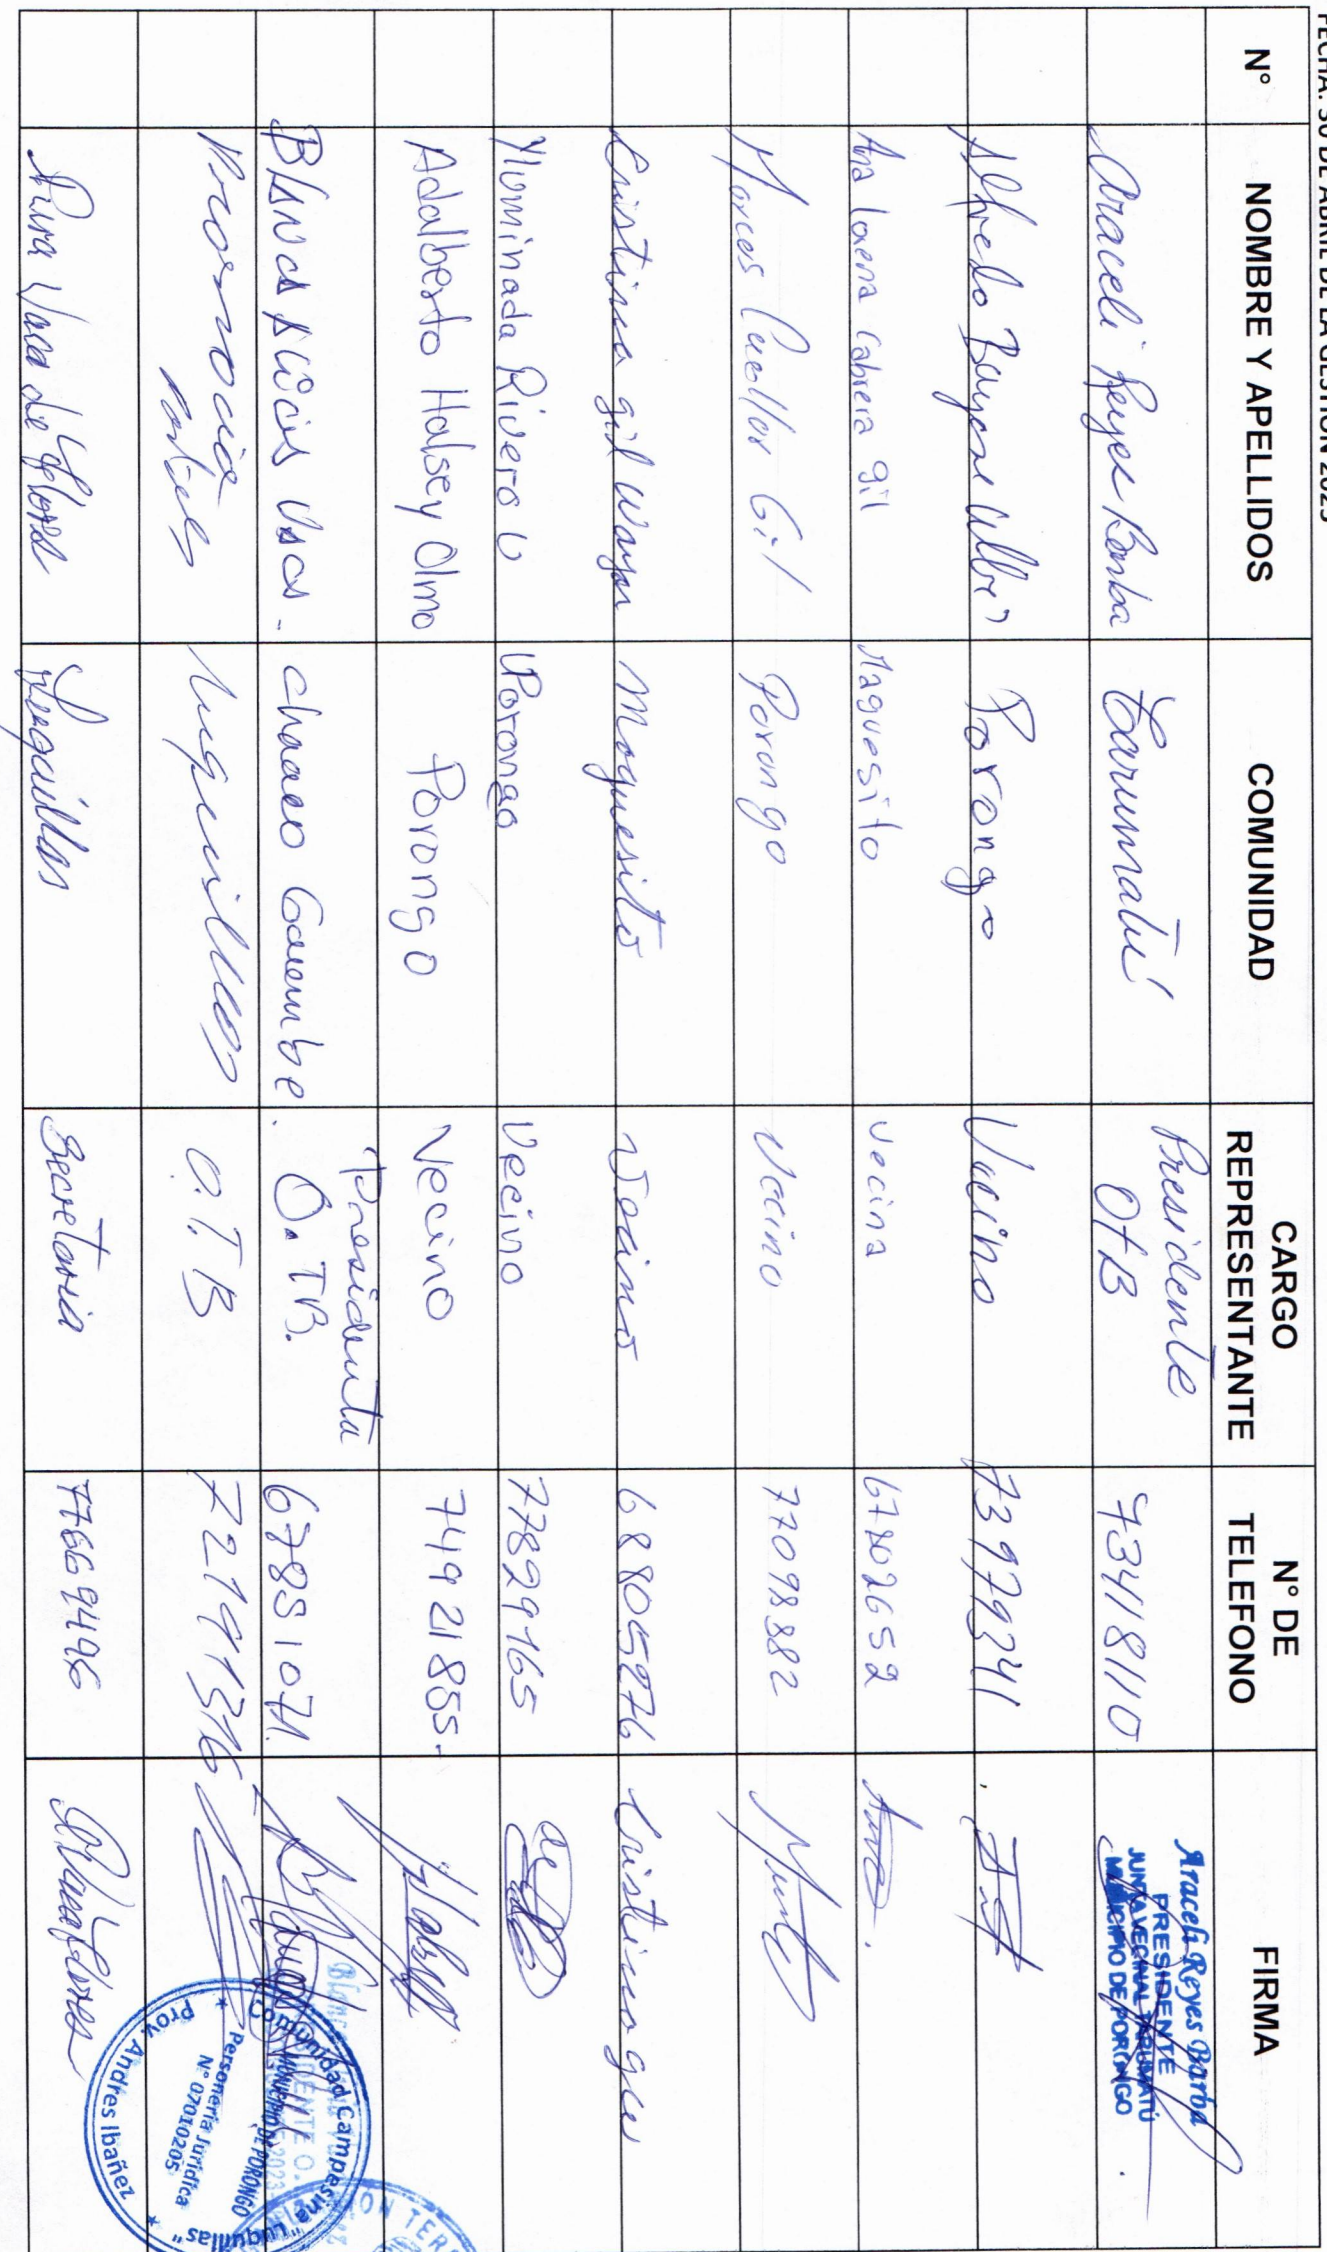 FECHA: 30 DE ABRIL DE LA GESTION 2025
N° NOMBRE Y APELLIDOS COMUNIDAD CARGO REPRESENTANTE N° DE TELEFONO FIRMA
Araceli Reyes Barba Tarumatú Presidente OTB 73418110
Araceli Reyes Barba
PRESIDENTE
JUNTA VECINAL TARUMATÚ
MUNICIPIO DE PORONGO
Alfredo Porongo Vecino 73979341
Ana Lorena Cabrera Gil Maguesito Vecina 67802652
Marcos Cuellar Gil Porongo Vecino 77098882
Cristina gil Moquesito Vecino 68805976 Cristina gil
Yluminada Rivero Porongo Vecino 77829165
Adalberto Halsey Olmo Porongo Vecino 74921855-
Presidenta
O.TB. 67851071.
luquillas O.T.B 72191316
Pura Vaca de Flores Luquillas Secretaria 77669496
Comunidad Campesina "Luquillas"
Personería Jurídica
N° 07010205
Prov. Andres Ibañez
MUNICIPIO DE PORONGO